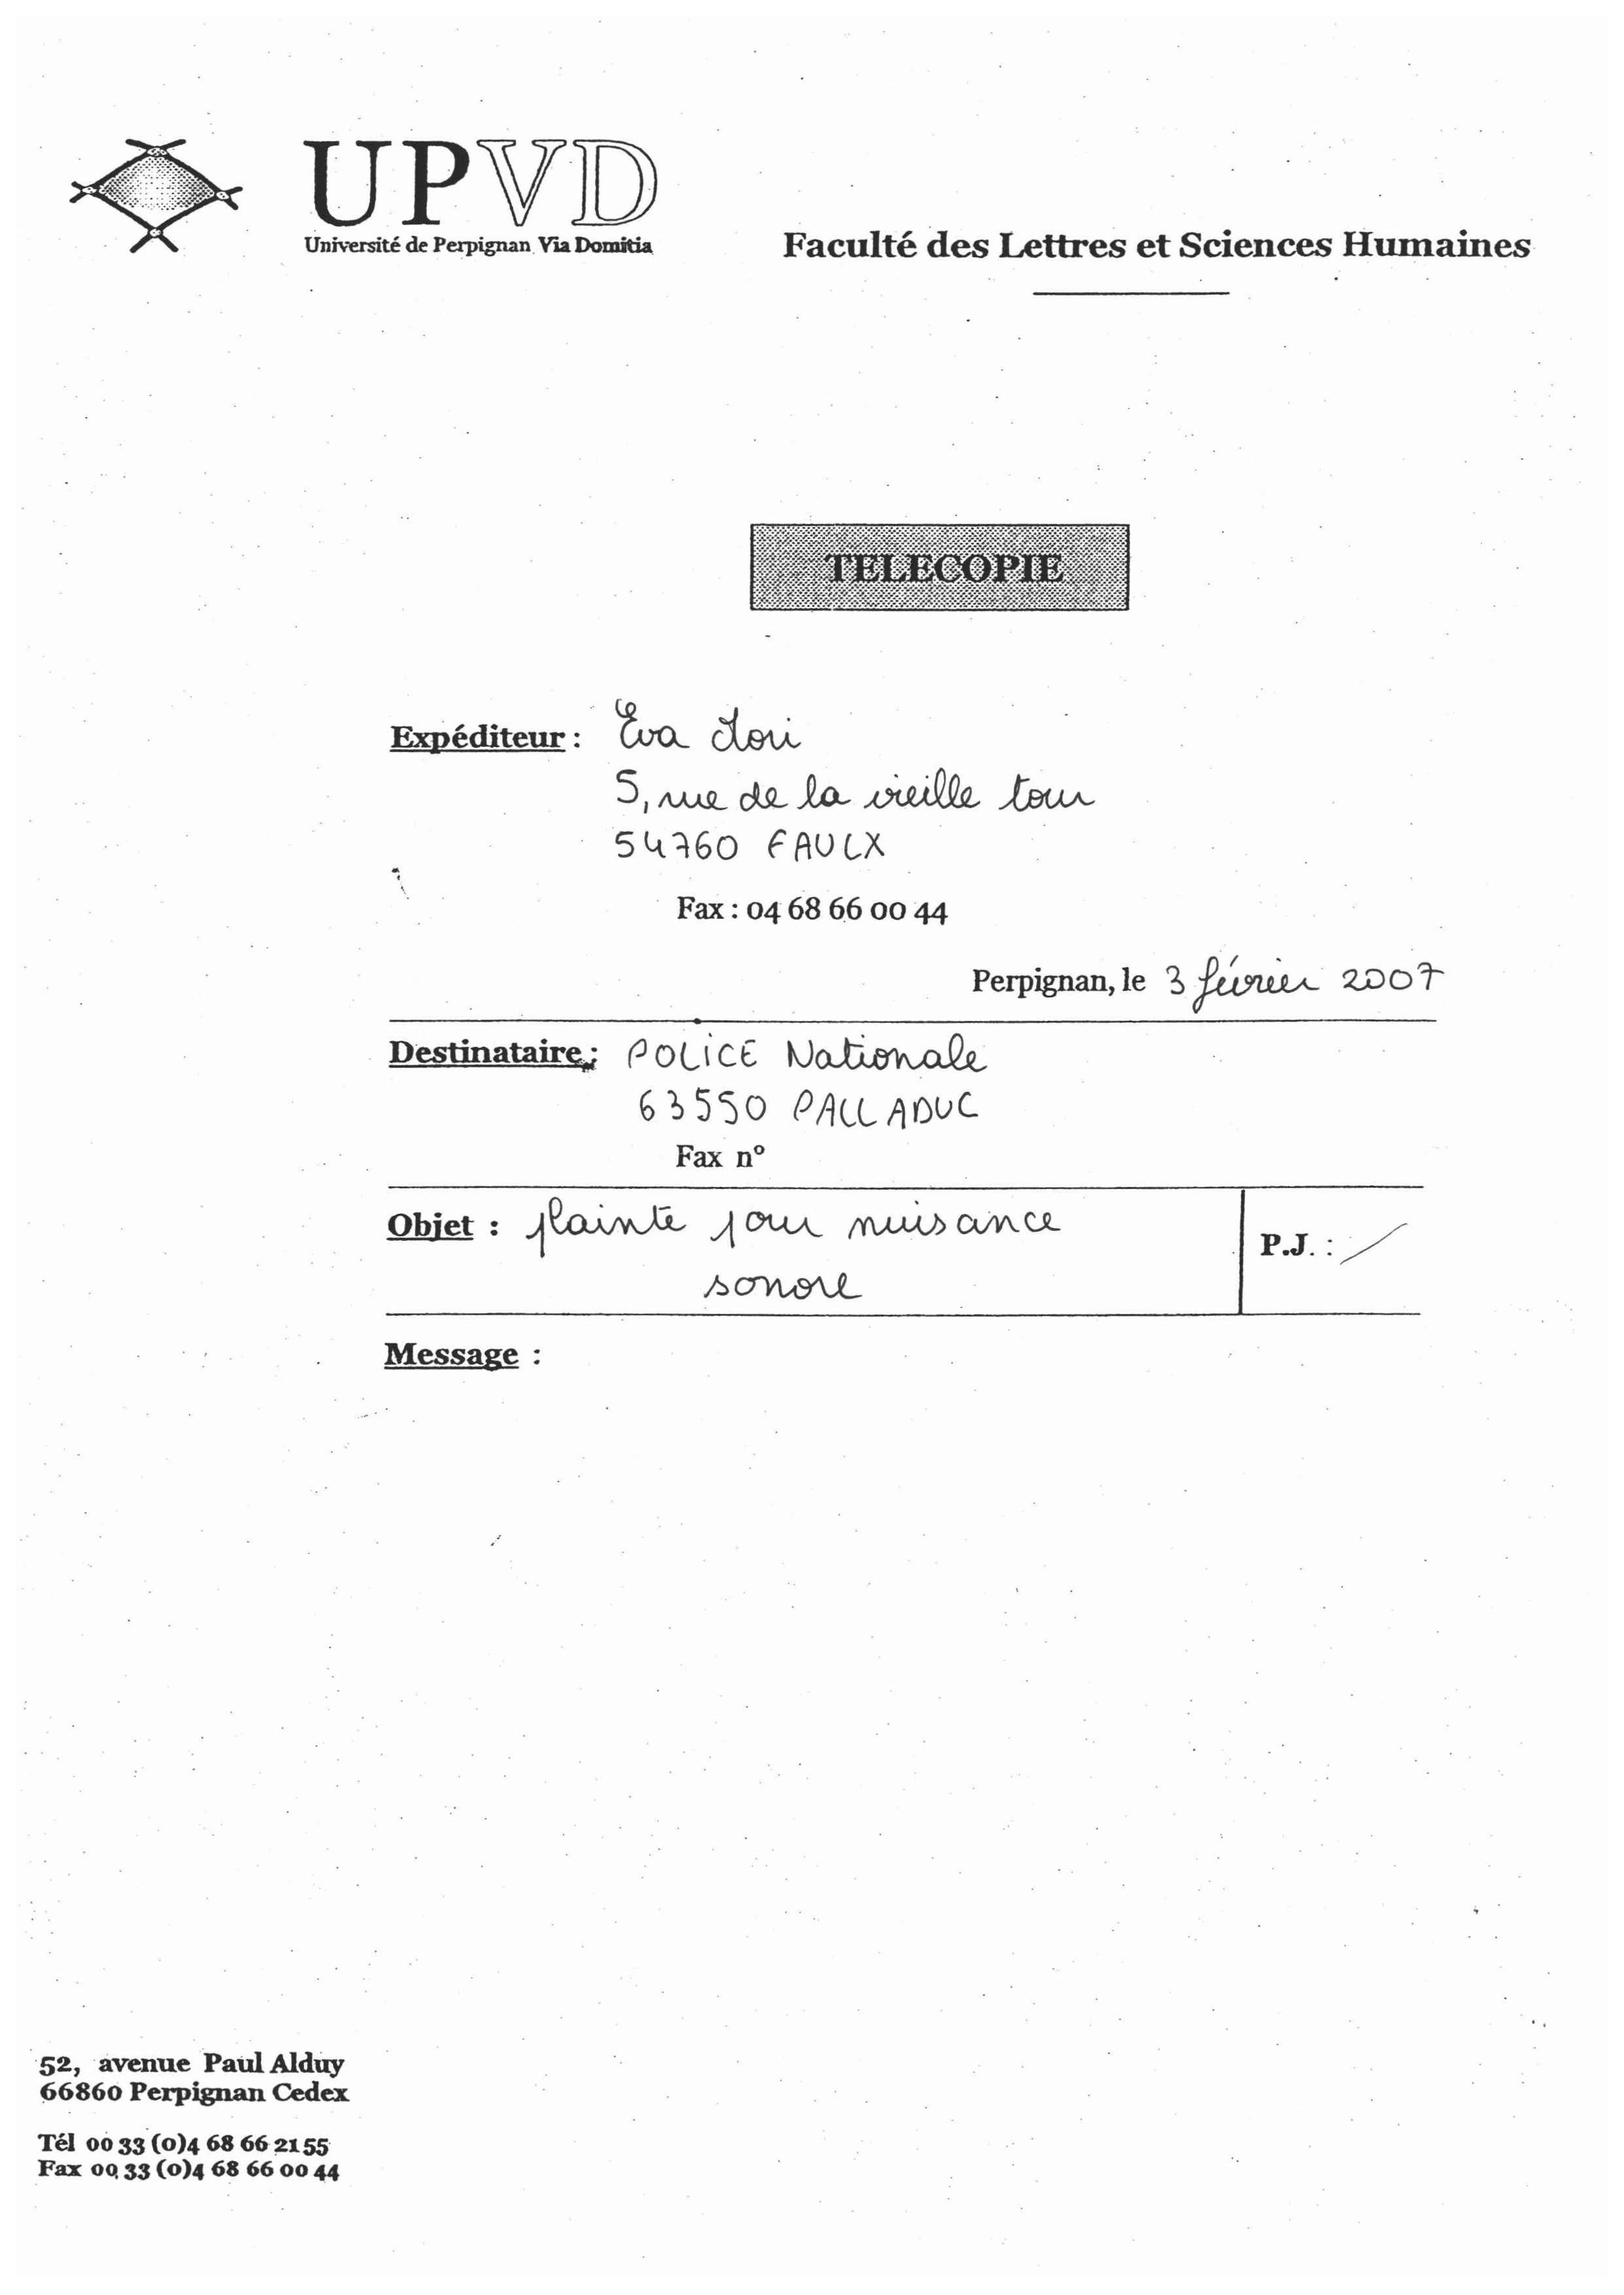 UPVD
Université de Perpignan Via Domitia
Faculté des Lettres et Sciences Humaines
TELECOPIE
Expéditeur : Eva
5, rue de la vieille tour
54760 FAULX
Fax : 04 68 66 00 44
Perpignan, le 3 février 2007
Destinataire : POLICE Nationale
63550 PALLADUC
Fax n°
Objet : plainte pour nuisance
sonore
P.J. : /
Message :
52, avenue Paul Alduy
66860 Perpignan Cedex
Tél 00 33 (0)4 68 66 21 55
Fax 00 33 (0)4 68 66 00 44